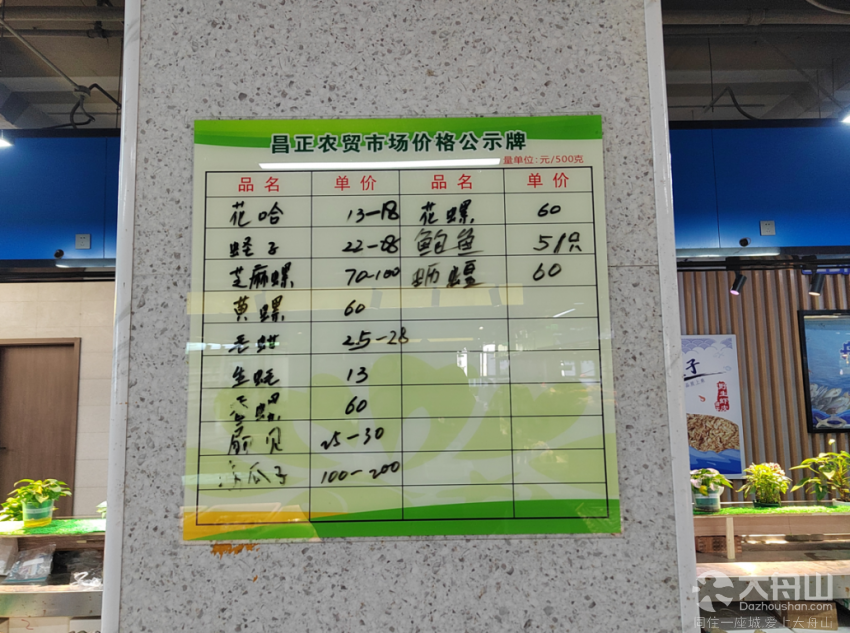 昌正农贸市场价格公示牌
量单位:元/500克
品名 单价 品名 单价
花哈 13-18 花螺 60
蛏子 22-25 鲍鱼 5/只
芝麻螺 70-100 蛎蝗 60
黄螺 60
毛蚶 25-28
生蚝 13
螺 60
扇贝 25-30
瓜子 100-200
子
大舟山
Dazhoushan.com
同住一座城.爱上大舟山